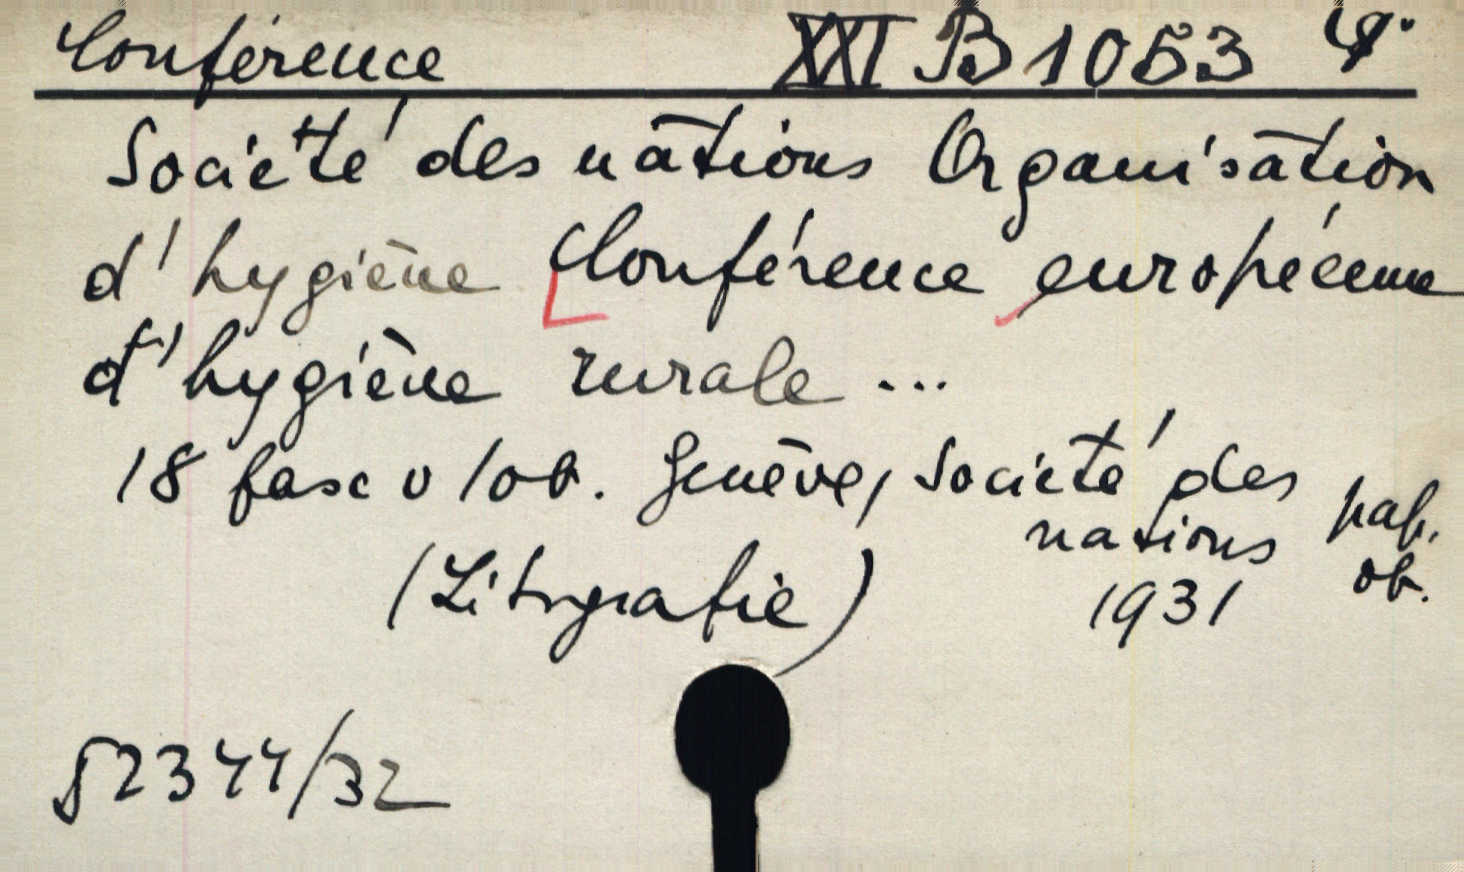 Conférence XXI B 1053 4°
Société des nations Organisation
d'hygiène Conférence européenne
d'hygiène rurale ...
18 fasc v 1 ob. Genève, Société des
nations pap.
ob.
(Litografie) 1931
§2344/32